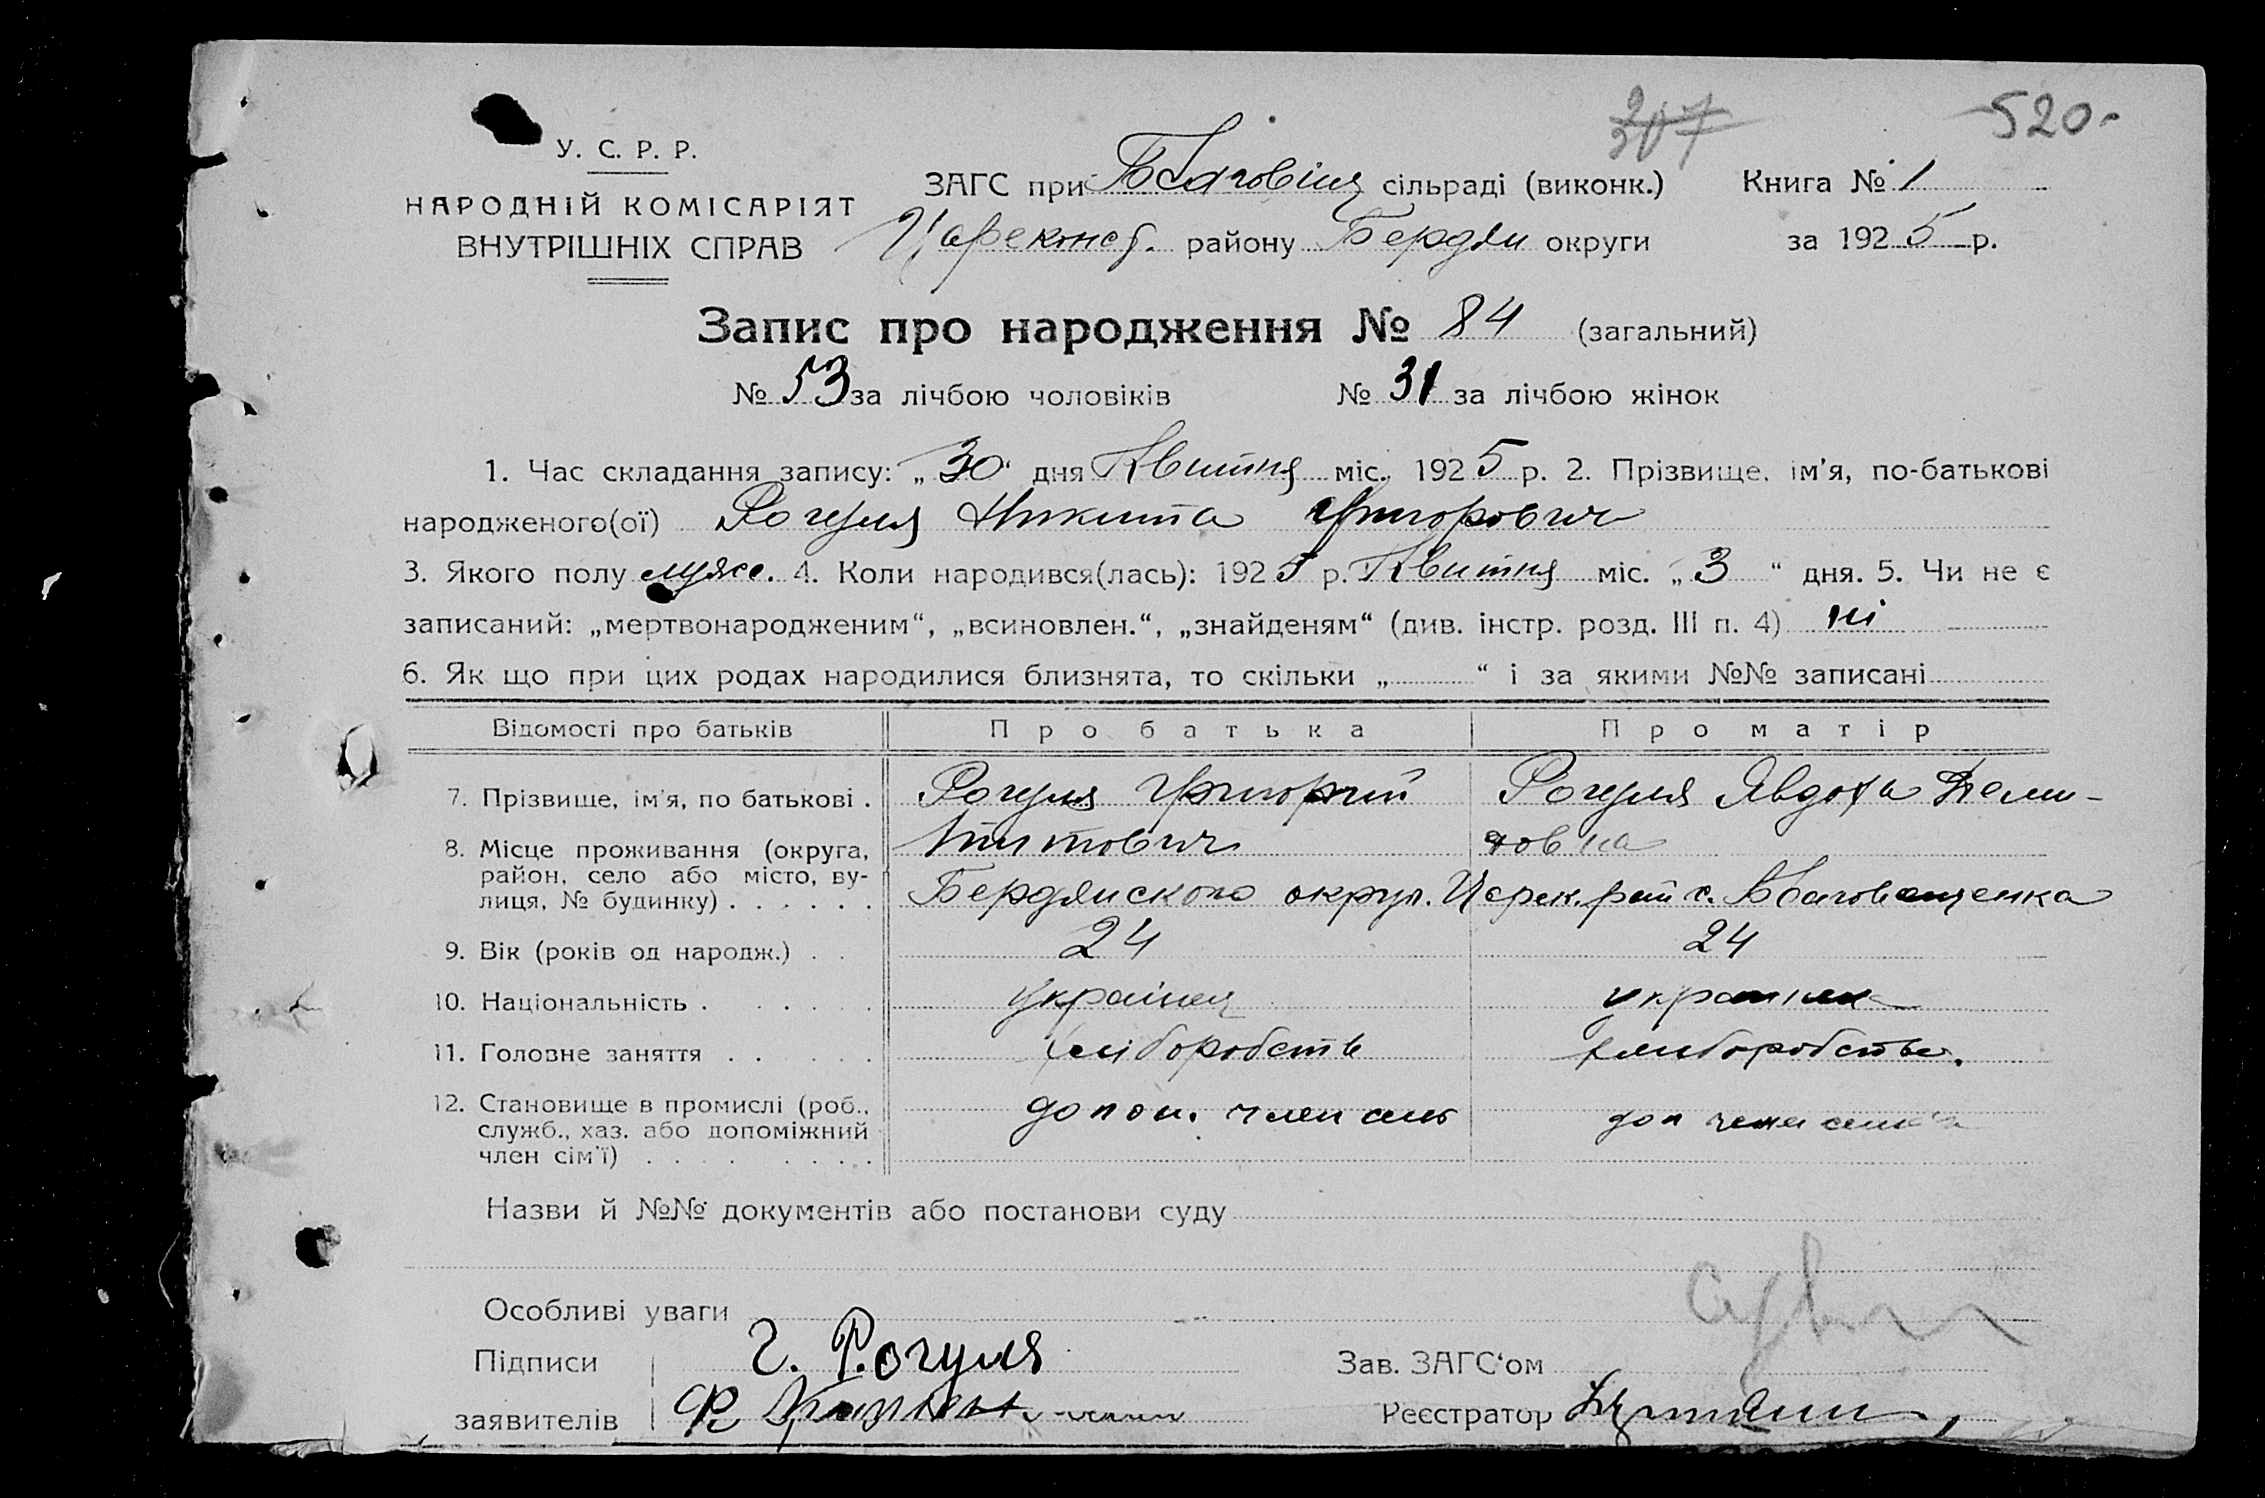 207
520.
У. С. Р. Р.
НАРОДНІЙ КОМІСАРІЯТ
ВНУТРІШНІХ СПРАВ
ЗАГС при Благовіщ сільраді (виконк.) Книга № 1
Цареконст. району Бердян округи за 1925 р.
Запис про народження № 84 (загальний)
№ 53 за лічбою чоловіків № 31 за лічбою жінок
1. Час складання запису: „30“ дня Квитня міс. 1925 р. 2. Прізвище, ім'я, по-батькові
народженого(ої) Рогуля Никита Григорович
3. Якого полу муже. 4. Коли народився(лась): 1925 р. Квитня міс. „3“ дня. 5. Чи не є
записаний: „мертвонародженим“, „всиновлен.“, „знайденям“ (див. інстр. розд. III п. 4) ні
6. Як що при цих родах народилися близнята, то скільки „ “ і за якими №№ записані
Відомості про батьків Про батька Про матір
7. Прізвище, ім'я, по батькові . Рогуля Григорий Рогуля Явдоха Деми-
Титович довна
8. Місце проживання (округа, район, село або місто, ву-лиця, № будинку) . . . . . . Бердянского округ. Царек. рай с. Благовещенка
9. Вік (років од народж.) . . 24 24
10. Національність . . . . . . українец украинка
11. Головне заняття . . . . . хліборобств хлиборобство.
12. Становище в промислі (роб.,
служб., хаз. або допоміжний
член сім'ї) . . . . . . . . допом. член сем доп член семі
Назви й №№ документів або постанови суду
Особливі уваги
Підписи Г. Рогуля Зав. ЗАГС'ом
заявителів Реєстратор